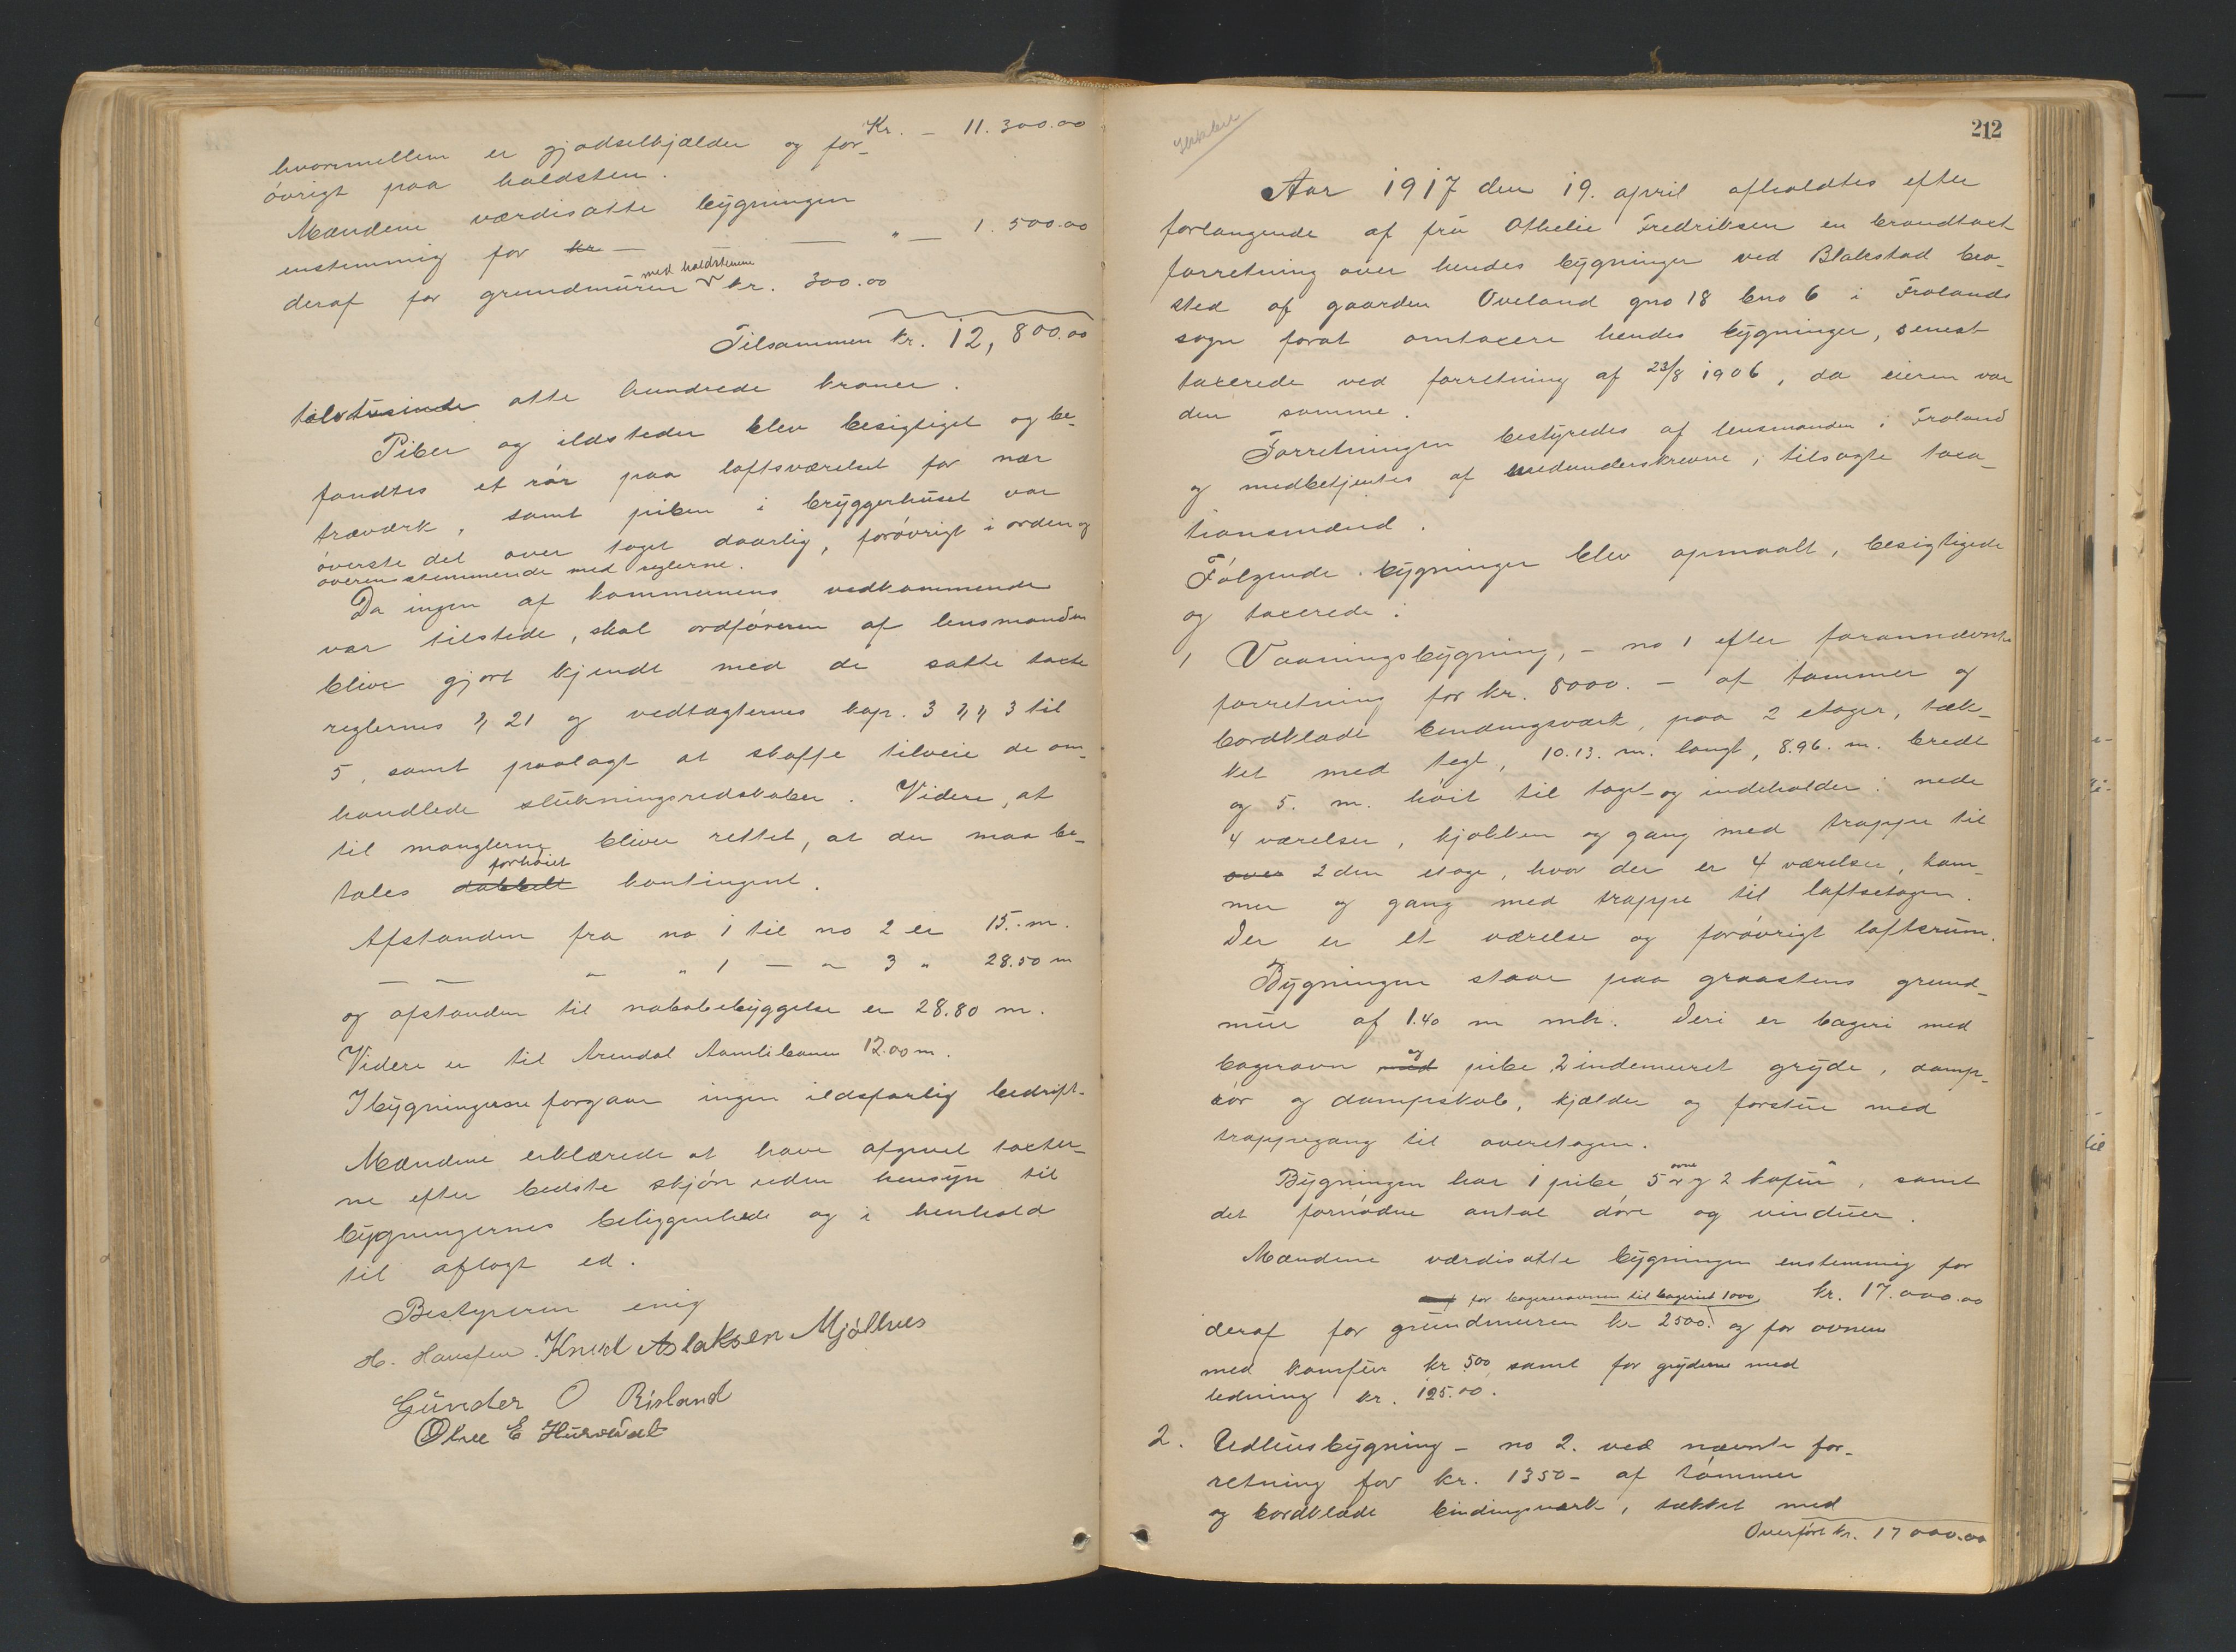 Kr. – 11.300.00
hvorimellem er gjødselkjælder og for-
øvrigt paa holdsten.
Mændene værdisatte bygningen
enstemmig for kr — — — " — 1.500.00
med holdstenene
deraf for grundmuren kr. 300.00
Tilsammen kr. 12,800.00
tolvtusinde otte hundrede kroner.
Piber og ildsteder blev besigtiget og be-
fandtes et rør paa loftsværelset for nær
træværk, samt piben i bryggerhuset var
øverste del over taget daarlig, forøvrigt i orden og
overensstemmende med reglerne.
Da ingen af kommunens vedkommende
var tilstede, skal ordføreren af lensmanden
blive gjort kjendt med de satte taxter
reglernes § 21 og vedtægternes kap. 3 §§ 3 til
5, samt paalagt at skaffe tilveie de om-
handlede slukningsredskaber. Videre, at
til manglerne bliver rettet, at der maa be-
forhøiet
tales dobbelt kontingent.
Afstanden fra no 1 til no 2 er 15.-m.
— — " " 1 — " 3 " 28.50 m
og afstanden til nabobebyggelse er 28.80 m.
Videre er til Arendal Aamlibanen 12.00 m.
I bygningerne forgaar ingen ildsfarlig bedrift.
Mændene erklærede at have afgivet taxter-
ne efter bedste skjøn uden hensyn til
bygningernes beliggenhede og i henhold
til aflagt ed.
Bestyreren enig
H. Hansen. Knud Aslaksen Mjølhus
Gunder O Risland
Olav E Hurveidt
212
Aar 1917 den 19. april afholdtes efter
forlangende af fru Othelie Fredriksen en brandtaxt
forretning over hendes bygninger ved Blakstad bro-
sted af gaarden Oveland gno 18 bno 6 i Frolands
sogn forat omtaxere hendes bygninger, senest
taxerede ved forretning af 23/8 1906, da eieren var
den samme.
Forretningen bestyredes af lensmanden i Froland
og medbetjentes af medunderskrevne, tilsagte taxa-
tionsmænd.
Følgende bygninger blev opmaalt, besigtigede
og taxerede:
1 Vaaningsbygning, – no 1 efter forannævnte
forretning for kr. 8000. – af tømmer og
bordklædt bindingsværk, paa 2 etager, tæk-
ket med tegl, 10.13. m. langt, 8.96. m. bredt
og 5. m. høit til taget og indeholder: nede
4 værelser, kjøkken og gang med trappe til
over 2den etage, hvor der er 4 værelser, kam-
mer og gang med trappe til loftsetagen.
Der er et værelse og forøvrigt loftsrum.
Bygningen staar paa graastens grund-
mur af 1.40 m mh. Deri er bageri med
og
bagerovn med pibe, 2 indemuret gryde, damp-
rør og dampskab, kjælder og forstue med
trappegang til overetagen.
ovne
Bygningen har 1 pibe 5 og 2 kofur, samt
det fornødne antal døre og vinduer.
Mændene værdisatte bygningen enstemmig for
for bagerovnen til bageriet 1000, kr. 17.000.00
deraf for grundmuren kr 2500. og for ovnene
med komfur kr 500, samt for gryderne med
ledning kr. 125.00.
2. Udhusbygning – no 2. ved nævnte for-
retning for kr. 1350 – af tømmer
og bordklædt bindingsværk, tækket med
Overført kr. 17000.00